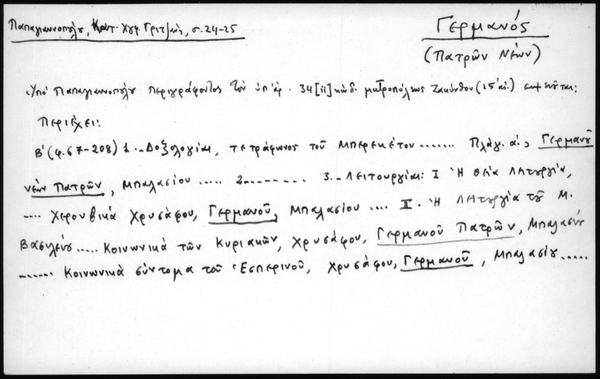 Παπαγιαννοπούλου, Κατ. Χγφ. Γριτσάνη, σ. 24-25
Γερμανός
(Πατρῶν Νέων)
Ὑπὸ Παπαγιαννοπούλου περιγράφοντος τὸν ὑπ' ἀρ. 34 [ii] κώδ. μητροπόλεως Ζακύνθου (
Περιέχει:
Β' (φ. 67-208) 1.- Δοξολογίαι, τετράφωνος τοῦ Μπερεκέτου ...... Πλάγ. α΄, Γερμανοῦ
νέων Πατρῶν, Μπαλασίου ..... 2 ........ 3.- Λειτουργίαι: I Ἡ θεία λειτουργία,
.... Χερουβικὰ Χρυσάφου, Γερμανοῦ, Μπαλασίου .... II. Ἡ λειτουργία τοῦ Μ.
Βασιλείου ..... Κοινωνικὰ τῶν Κυριακῶν, Χρυσάφου, Γερμανοῦ Πατρῶν, Μπαλασίου
....... Κοινωνικὰ σύντομα τοῦ Ἑσπερινοῦ, Χρυσάφου, Γερμανοῦ, Μπαλασίου ......